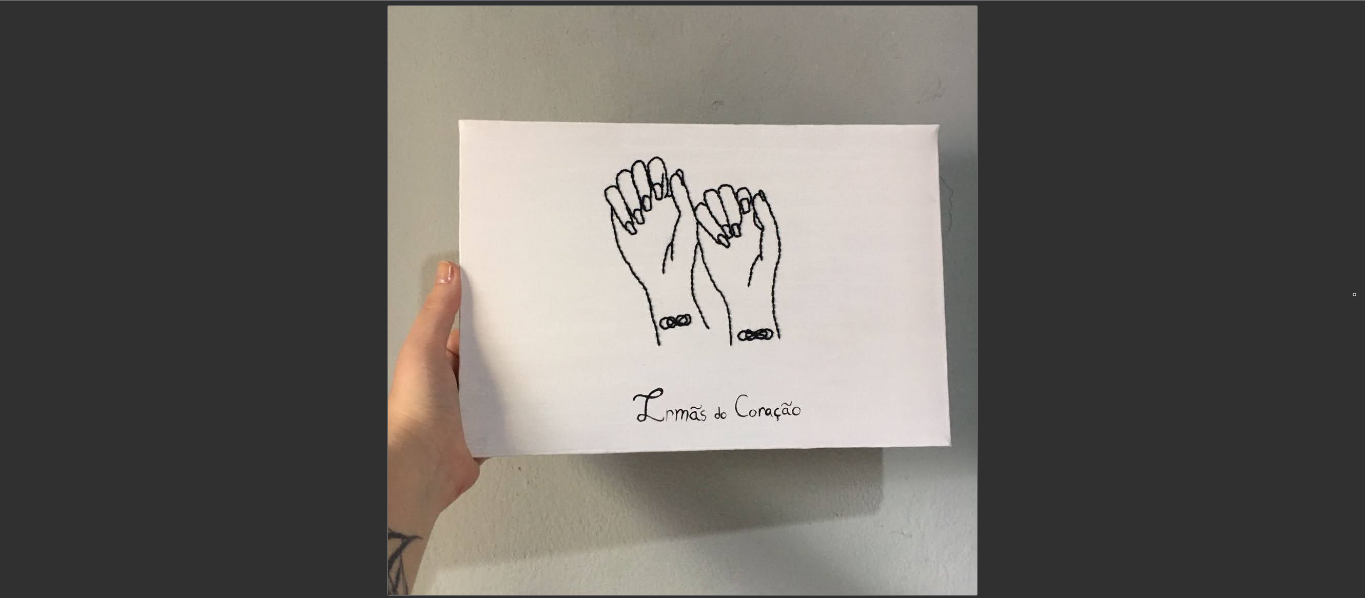 Irmãs do Coração